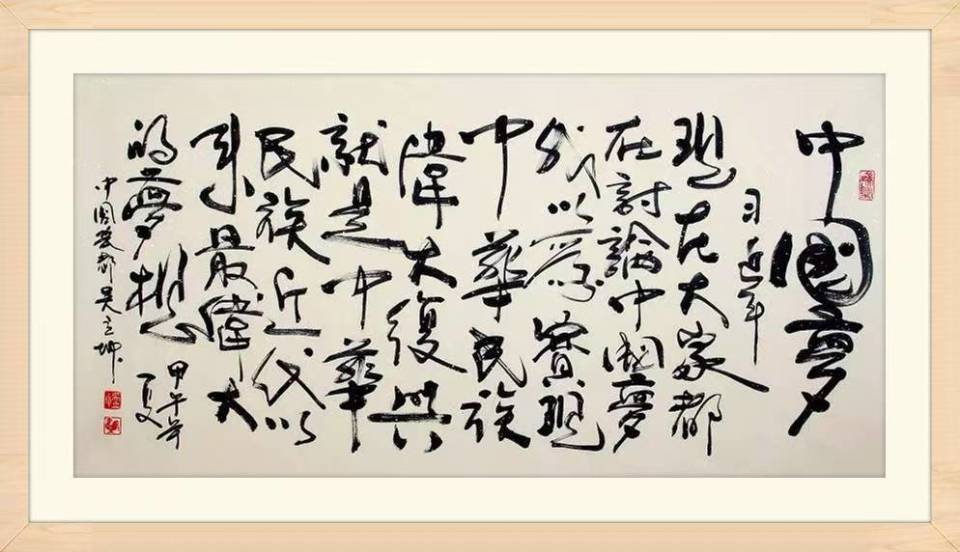 中國夢
习近平
現在大家都
在討論中國夢
我以為實現
中華民族
偉大復興
就是中華
民族近代以
來最偉大
的夢想
中國 都吴立坤
甲午年
夏